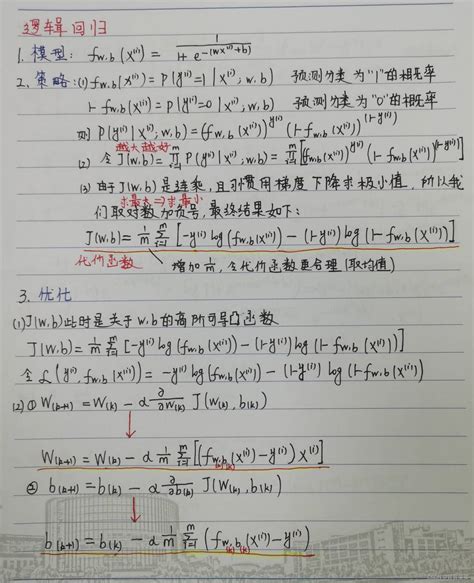 逻辑回归
1. 模型: f_{w,b}(x^{(i)}) = \frac{1}{1+e^{-(wx^{(i)}+b)}}
2. 策略: (1) f_{w,b}(x^{(i)}) = P(y^{(i)}=1|x^{(i)};w,b) 预测分类为"1"的概率
1-f_{w,b}(x^{(i)}) = P(y^{(i)}=0|x^{(i)};w,b) 预测分类为"0"的概率
则 P(y^{(i)}|x^{(i)};w,b) = (f_{w,b}(x^{(i)}))^{y^{(i)}} (1-f_{w,b}(x^{(i)}))^{(1-y^{(i)})}
越大越好
(2) 令 J(w,b) = \prod_{i=1}^{m} P(y^{(i)}|x^{(i)};w,b) = \prod_{i=1}^{m} [(f_{w,b}(x^{(i)}))^{y^{(i)}} (1-f_{w,b}(x^{(i)}))^{(1-y^{(i)})}]
(3) 由于J(w,b)是连乘,且习惯用梯度下降求极小值,所以我
求最大⇒求最小
们取对数加负号,最终结果如下:
J(w,b) = \frac{1}{m} \sum_{i=1}^{m} [-y^{(i)} log(f_{w,b}(x^{(i)})) - (1-y^{(i)}) log(1-f_{w,b}(x^{(i)}))]
代价函数 增加\frac{1}{m},令代价函数更合理(取均值)
3. 优化
(1) J(w,b)此时是关于w,b的高阶可导凸函数
J(w,b) = \frac{1}{m} \sum_{i=1}^{m} [-y^{(i)} log(f_{w,b}(x^{(i)})) - (1-y^{(i)}) log(1-f_{w,b}(x^{(i)}))]
令 L(y^{(i)}, f_{w,b}(x^{(i)})) = -y^{(i)} log(f_{w,b}(x^{(i)})) - (1-y^{(i)}) log(1-f_{w,b}(x^{(i)}))
(2) ① W_{(k+1)} = W_{(k)} - α \frac{∂}{∂W_{(k)}} J(W_{(k)}, b_{(k)})
W_{(k+1)} = W_{(k)} - α \frac{1}{m} \sum_{i=1}^{m} [(f_{w_{(k)},b_{(k)}}(x^{(i)}) - y^{(i)}) x^{(i)}]
② b_{(k+1)} = b_{(k)} - α \frac{∂}{∂b_{(k)}} J(W_{(k)}, b_{(k)})
b_{(k+1)} = b_{(k)} - α \frac{1}{m} \sum_{i=1}^{m} (f_{w_{(k)},b_{(k)}}(x^{(i)}) - y^{(i)})